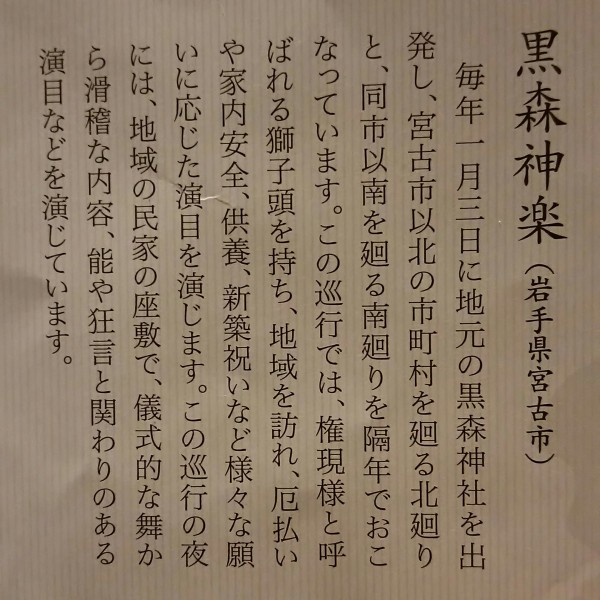 黒森神楽（岩手県宮古市）
毎年一月三日に地元の黒森神社を出
発し、宮古市以北の市町村を廻る北廻り
と、同市以南を廻る南廻りを隔年でおこ
なっています。この巡行では、権現様と呼
ばれる獅子頭を持ち、地域を訪れ、厄払い
や家内安全、供養、新築祝いなど様々な願
いに応じた演目を演じます。この巡行の夜
には、地域の民家の座敷で、儀式的な舞か
ら滑稽な内容、能や狂言と関わりのある
演目などを演じています。